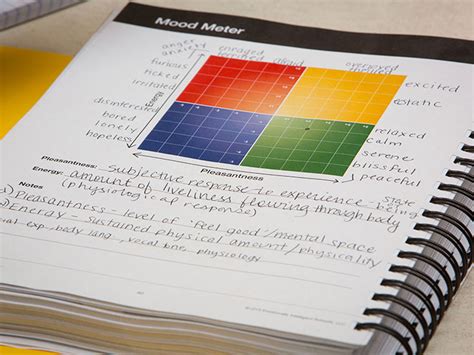 Mood Meter
anger
anxiety
enraged
terrified
overjoyed
thrilled
furious
ticked
irritated
excited
ecstatic
Energy
disinterested
bored
lonely
hopeless
relaxed
calm
serene
blissful
peaceful
Pleasantness
Pleasantness: Subjective response to experience - state
Energy: amount of liveliness flowing through body being
(physiological response)
Notes
Pleasantness - level of "feel good"/mental space
Energy - Sustained physical amount/physicality
exp., body lang, vocal tone, physiology